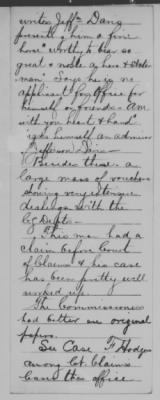 writes Jeffn Davis
presents him a fine
horse "worthy to bear so
great & noble a hero & States-
man". Says he is no
applicant for office for
himself or friends. Am
with you heart & hand"
signs himself an admirer
of Jefferson Davis
Besides these a
large mass of vouchers
showing very extensive
dealings with the
C.S. Depts.
This man had a
claim before Court
of Claims & his case
has been pretty well
worked up.
The Commissioners
had better see original
papers.
See Case F Hodges
among Ct. Claims
Cases this office